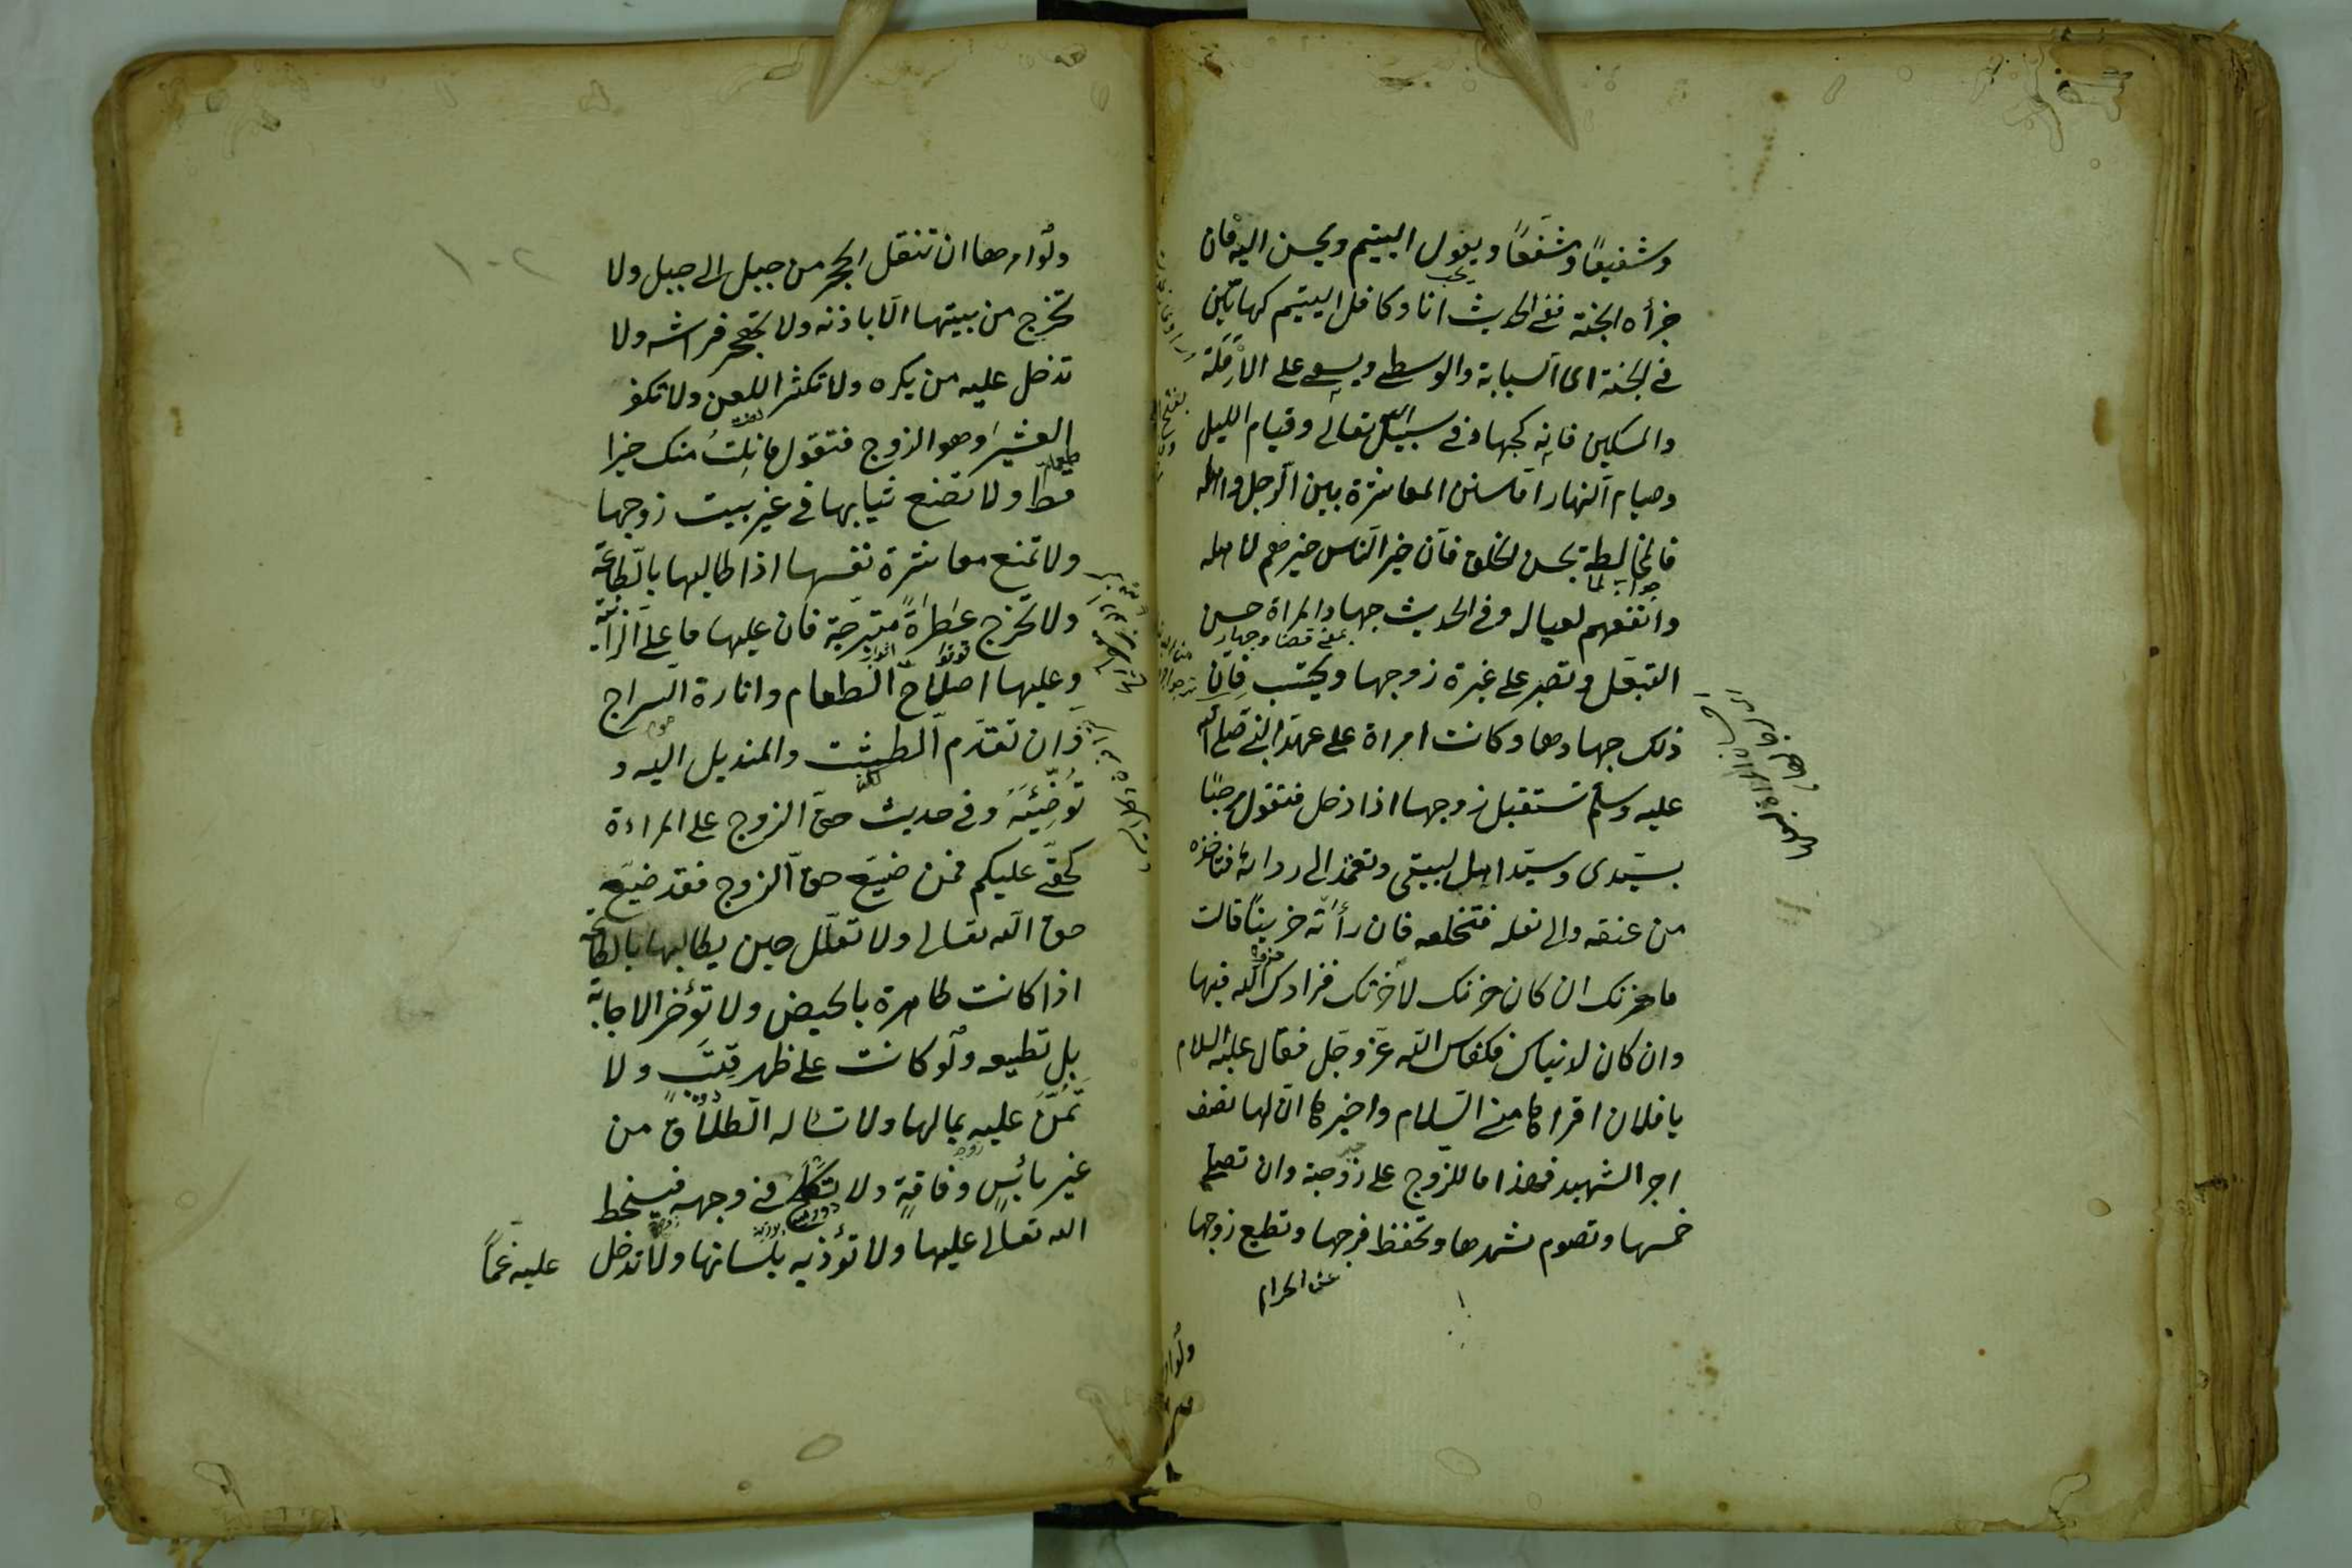 وشفيقًا وشفعًا ويعول اليتيم ويحسن اليه فان
جزأه الجنة ففى الحديث انا وكافل اليتيم كهاتين
فى الجنة اى السبابة والوسطى ويسعى على الأرملة
والمسكين فانه كجهاد فى سبيل الله تعالى وقيام الليل
وصيام النهار اما سنن المعاشرة بين الرجل واهله
فالمخالطة بحسن الخلق فان خير الناس خيرهم لاهله
وانفعهم لعياله وفى الحديث جهاد المراة حسن
التبعل وتصبر على غيرة زوجها وتحتسب فان
ذلك جهادها وكانت امراة على عهد النبى صلى الله
عليه وسلم تستقبل زوجها اذا دخل فتقول مرحبًا
بسيدى وسيد اهل بيتى وتعمد الى ردائه فتاخذه
من عنقه والى نعله فتخلعه فان رأته حزينًا قالت
ما حزنك ان كان حزنك لآخرتك فزادك الله فيها
وان كان لدنياك فكفاك الله عز وجل فقال عليه السلام
يا فلان اقراها منى السلام واخبرها ان لها نصف
اجر الشهيد فهذا ما للزوج على زوجته وان تصلى
خمسها وتصوم شهرها وتحفظ فرجها وتطيع زوجها
عن الحرام
ولوامر
١٠٢
ولو امرها ان تنقل الحجر من جبل الى جبل ولا
تخرج من بيتها الا باذنه ولا تهجر فراشه ولا
تدخل عليه من يكره ولا تكثر اللعن ولا تكفر
العشير وهو الزوج فتقول ما نلت منك خيرا
قط ولا تضع ثيابها فى غير بيت زوجها
ولا تمنع معاشرة نفسها اذا طالبها بالطاعة
ولا تخرج عطرة متبرجة فان عليها ما على الزانية
وعليها اصلاح الطعام وانارة السراج
وان تقدم الطشت والمنديل اليه و
توضئه وفى حديث حق الزوج على المراءة
كحقى عليكم فمن ضيع حق الزوج فقد ضيع
حق الله تعالى ولا تعلل حين يطالبها بالطاعة
اذا كانت طاهرة بالحيض ولا تؤخر الاجابة
بل تطيعه ولو كانت على ظهر قتب ولا
تمن عليه بمالها ولا تساله الطلاق من
غير بائس وفاقة ولا تكلح فى وجهه فيسخط
الله تعالى عليها ولا تؤذيه بلسانها ولا تدخل عليه غمًا